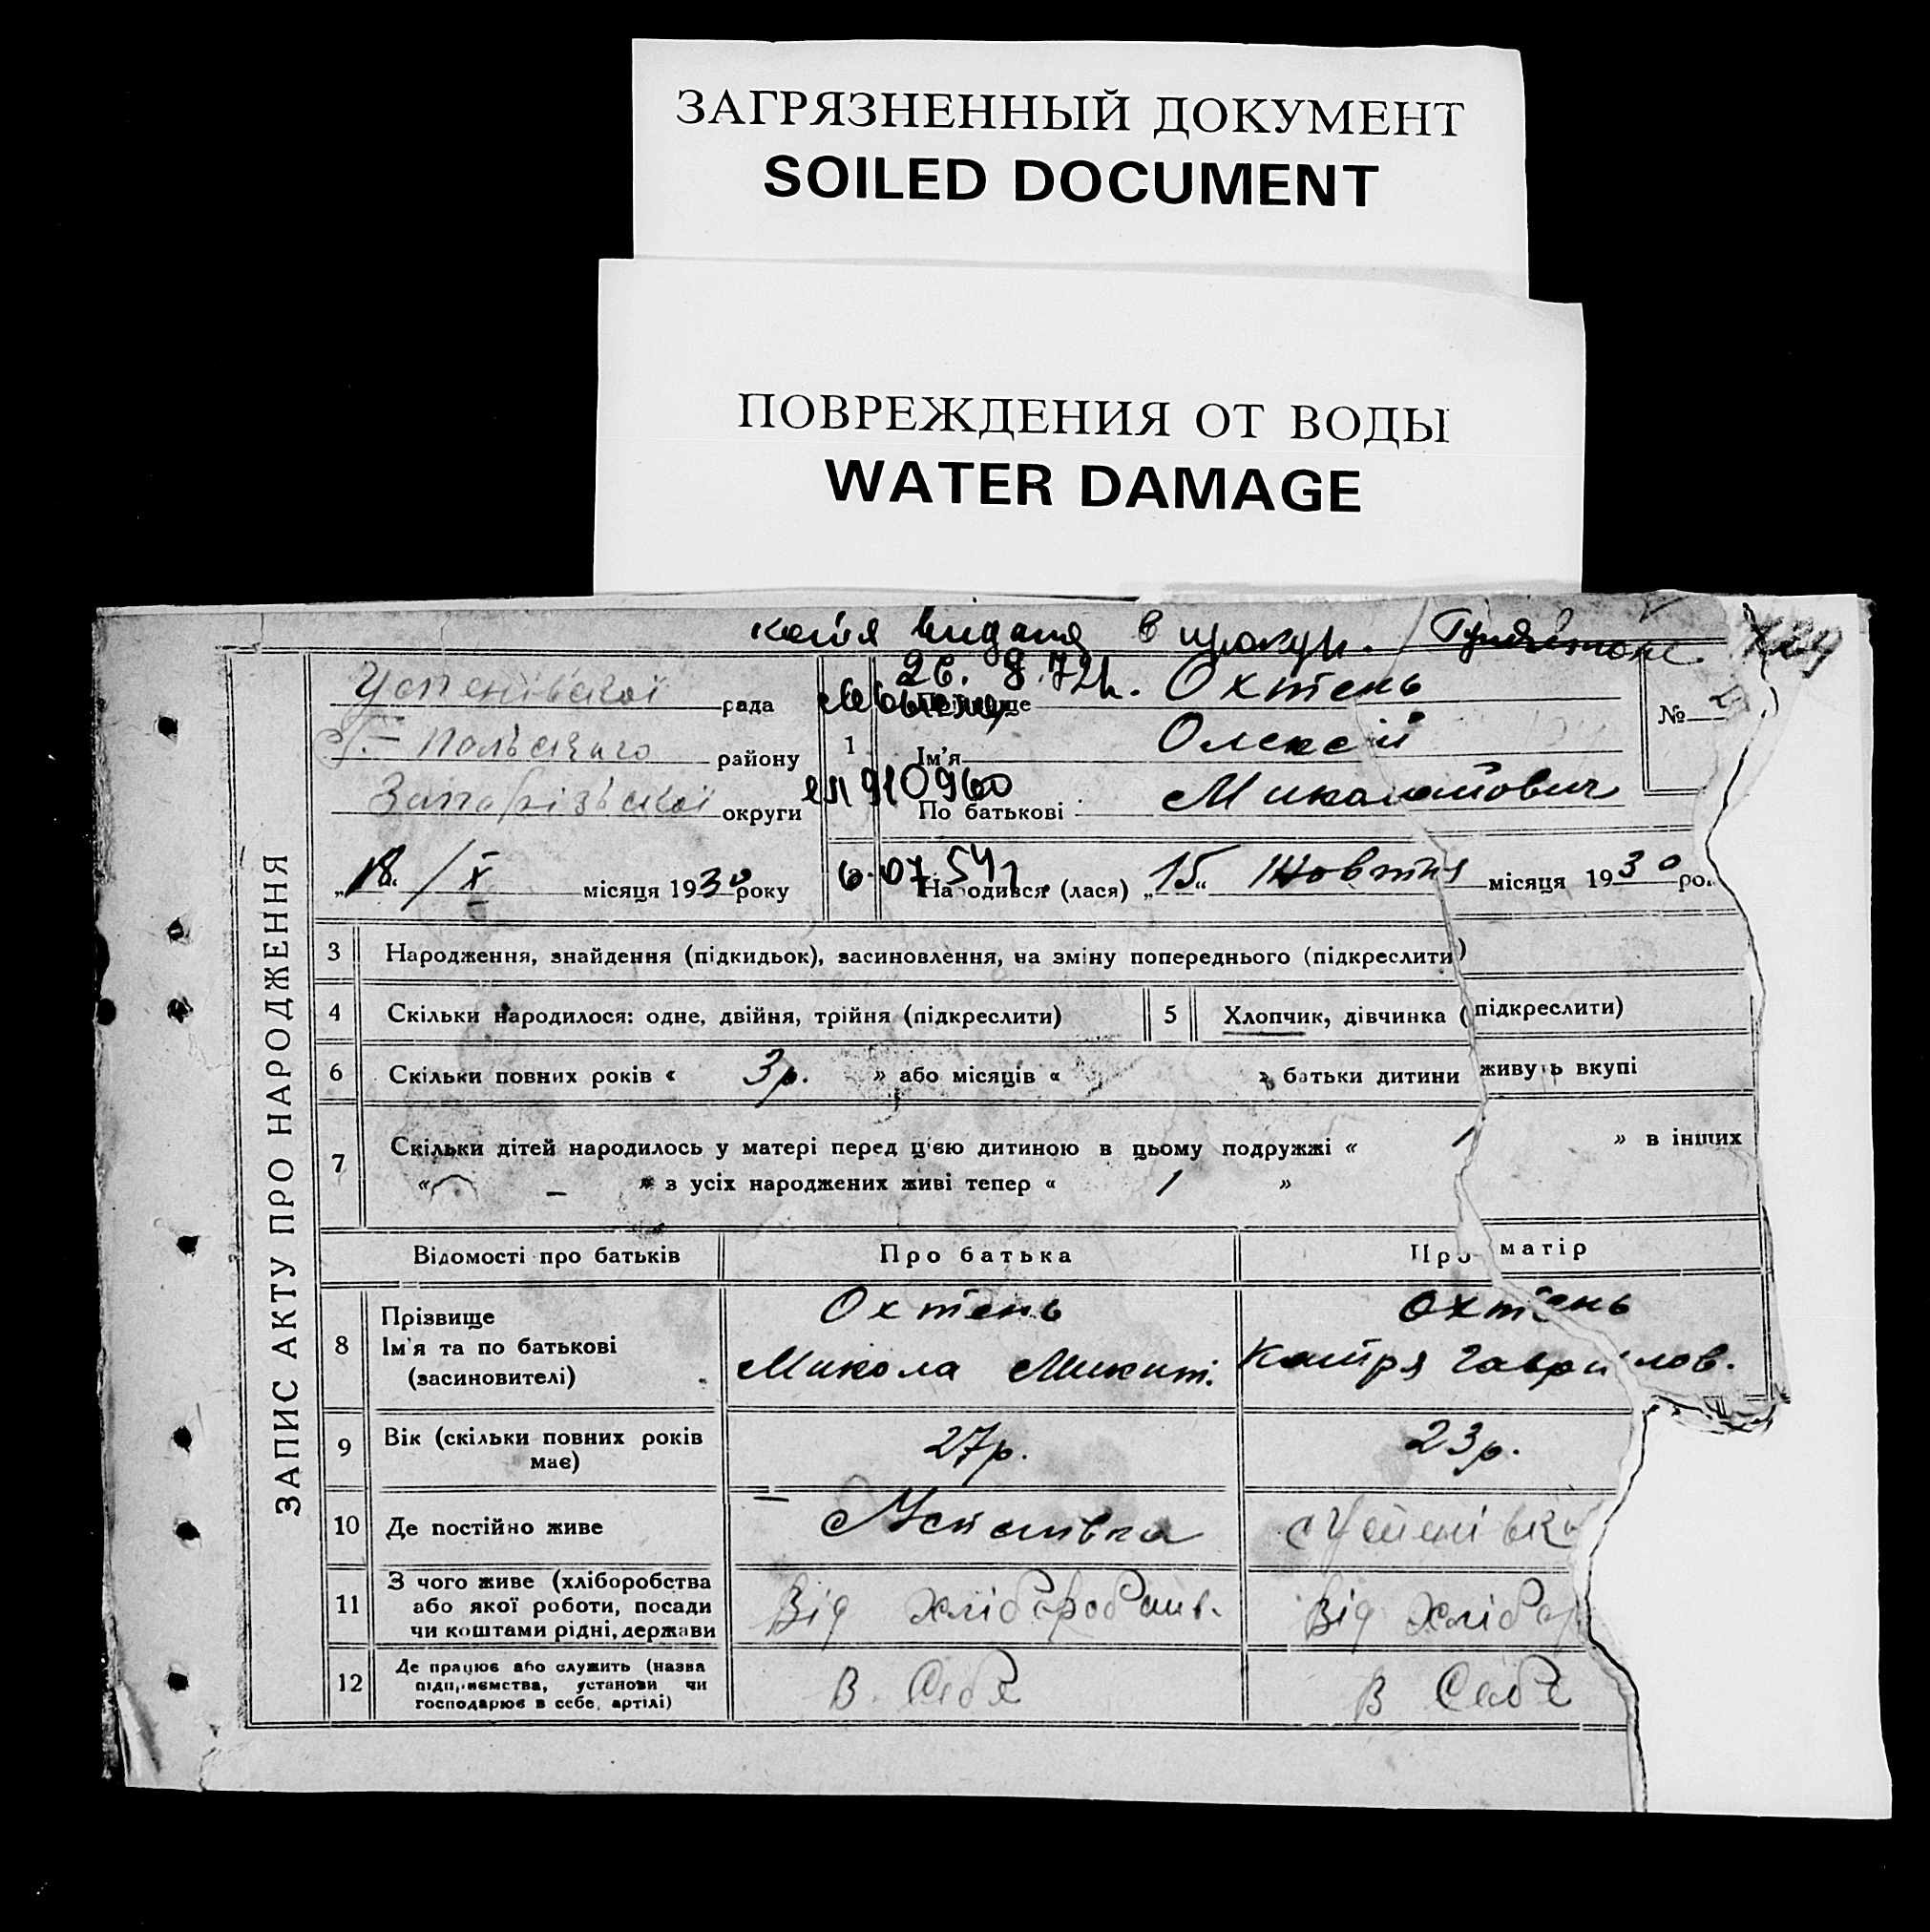 ЗАГРЯЗНЕННЫЙ ДОКУМЕНТ
SOILED DOCUMENT
ПОВРЕЖДЕНИЯ ОТ ВОДЫ
WATER DAMAGE
копія видана в прокур.
26. 8. 72р.
Успенівської рада
Польського району
Запорізької округи
„18“ / X місяця 1930 року
910960
1 Прізвище Охтень
Ім'я Олексій
По батькові Миколайович
№
Народився (лася) „15“ Жовтня місяця 1930 ро
ЗАПИС АКТУ ПРО НАРОДЖЕННЯ
3 Народження, знайдення (підкидьок), засиновлення, на зміну попереднього (підкреслити)
4 Скільки народилося: одне, двійня, трійня (підкреслити)
5 Хлопчик, дівчинка (підкреслити)
6 Скільки повних років « 3р. » або місяців « » батьки дитини живуть вкупі
7 Скільки дітей народилось у матері перед ц'єю дитиною в цьому подружжі « 1 » в інших
« – » з усіх народжених живі тепер « 1 »
Відомості про батьків Про батька Про матір
8 Прізвище Охтень Охтень
Ім'я та по батькові Микола Микит. Катря Гаврилов.
(засиновителі)
9 Вік (скільки повних років має) 27р. 23р.
10 Де постійно живе Успенівка с Успенівка
11 З чого живе (хліборобства
або якої роботи, посади Від хліборобств. Від хлібор
чи коштами рідні, держави
12 Де працює або служить (назва
підприємства, установи чи В. Себе В Себе
господарює в себе, артілі)